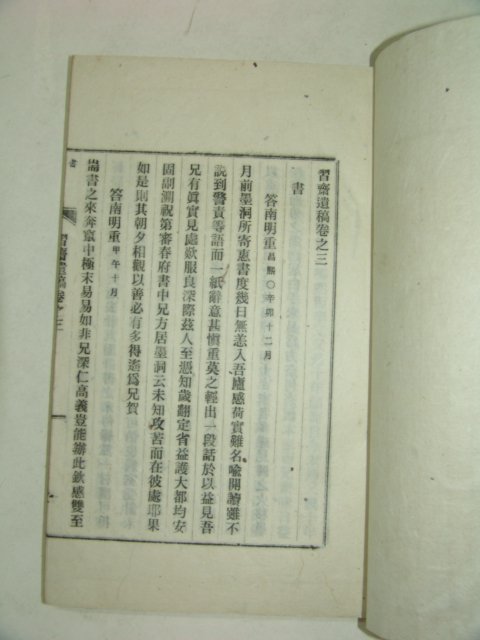 習齋遺稿卷之三
書
答南明重昌熙○辛卯十二月
月前墨洞所寄惠書度幾日無恙入吾廬感荷實難名喩開讀雖不
說到警責等語而一紙辭意甚愼重莫之輕出一段話於以益見吾
兄有眞實見處歎服良深際玆人至憑知歲翻定省益護大都均安
固副溯祝第審春府書中兄方居墨洞云未知攻苦而在彼處耶果
如是則其朝夕相觀以善必有多得遙爲兄賀
答南明重甲午十月
耑書之來奔竄中極未易易如非兄深仁高義豈能辦此欽感雙至
習齋遺稿卷之三
書